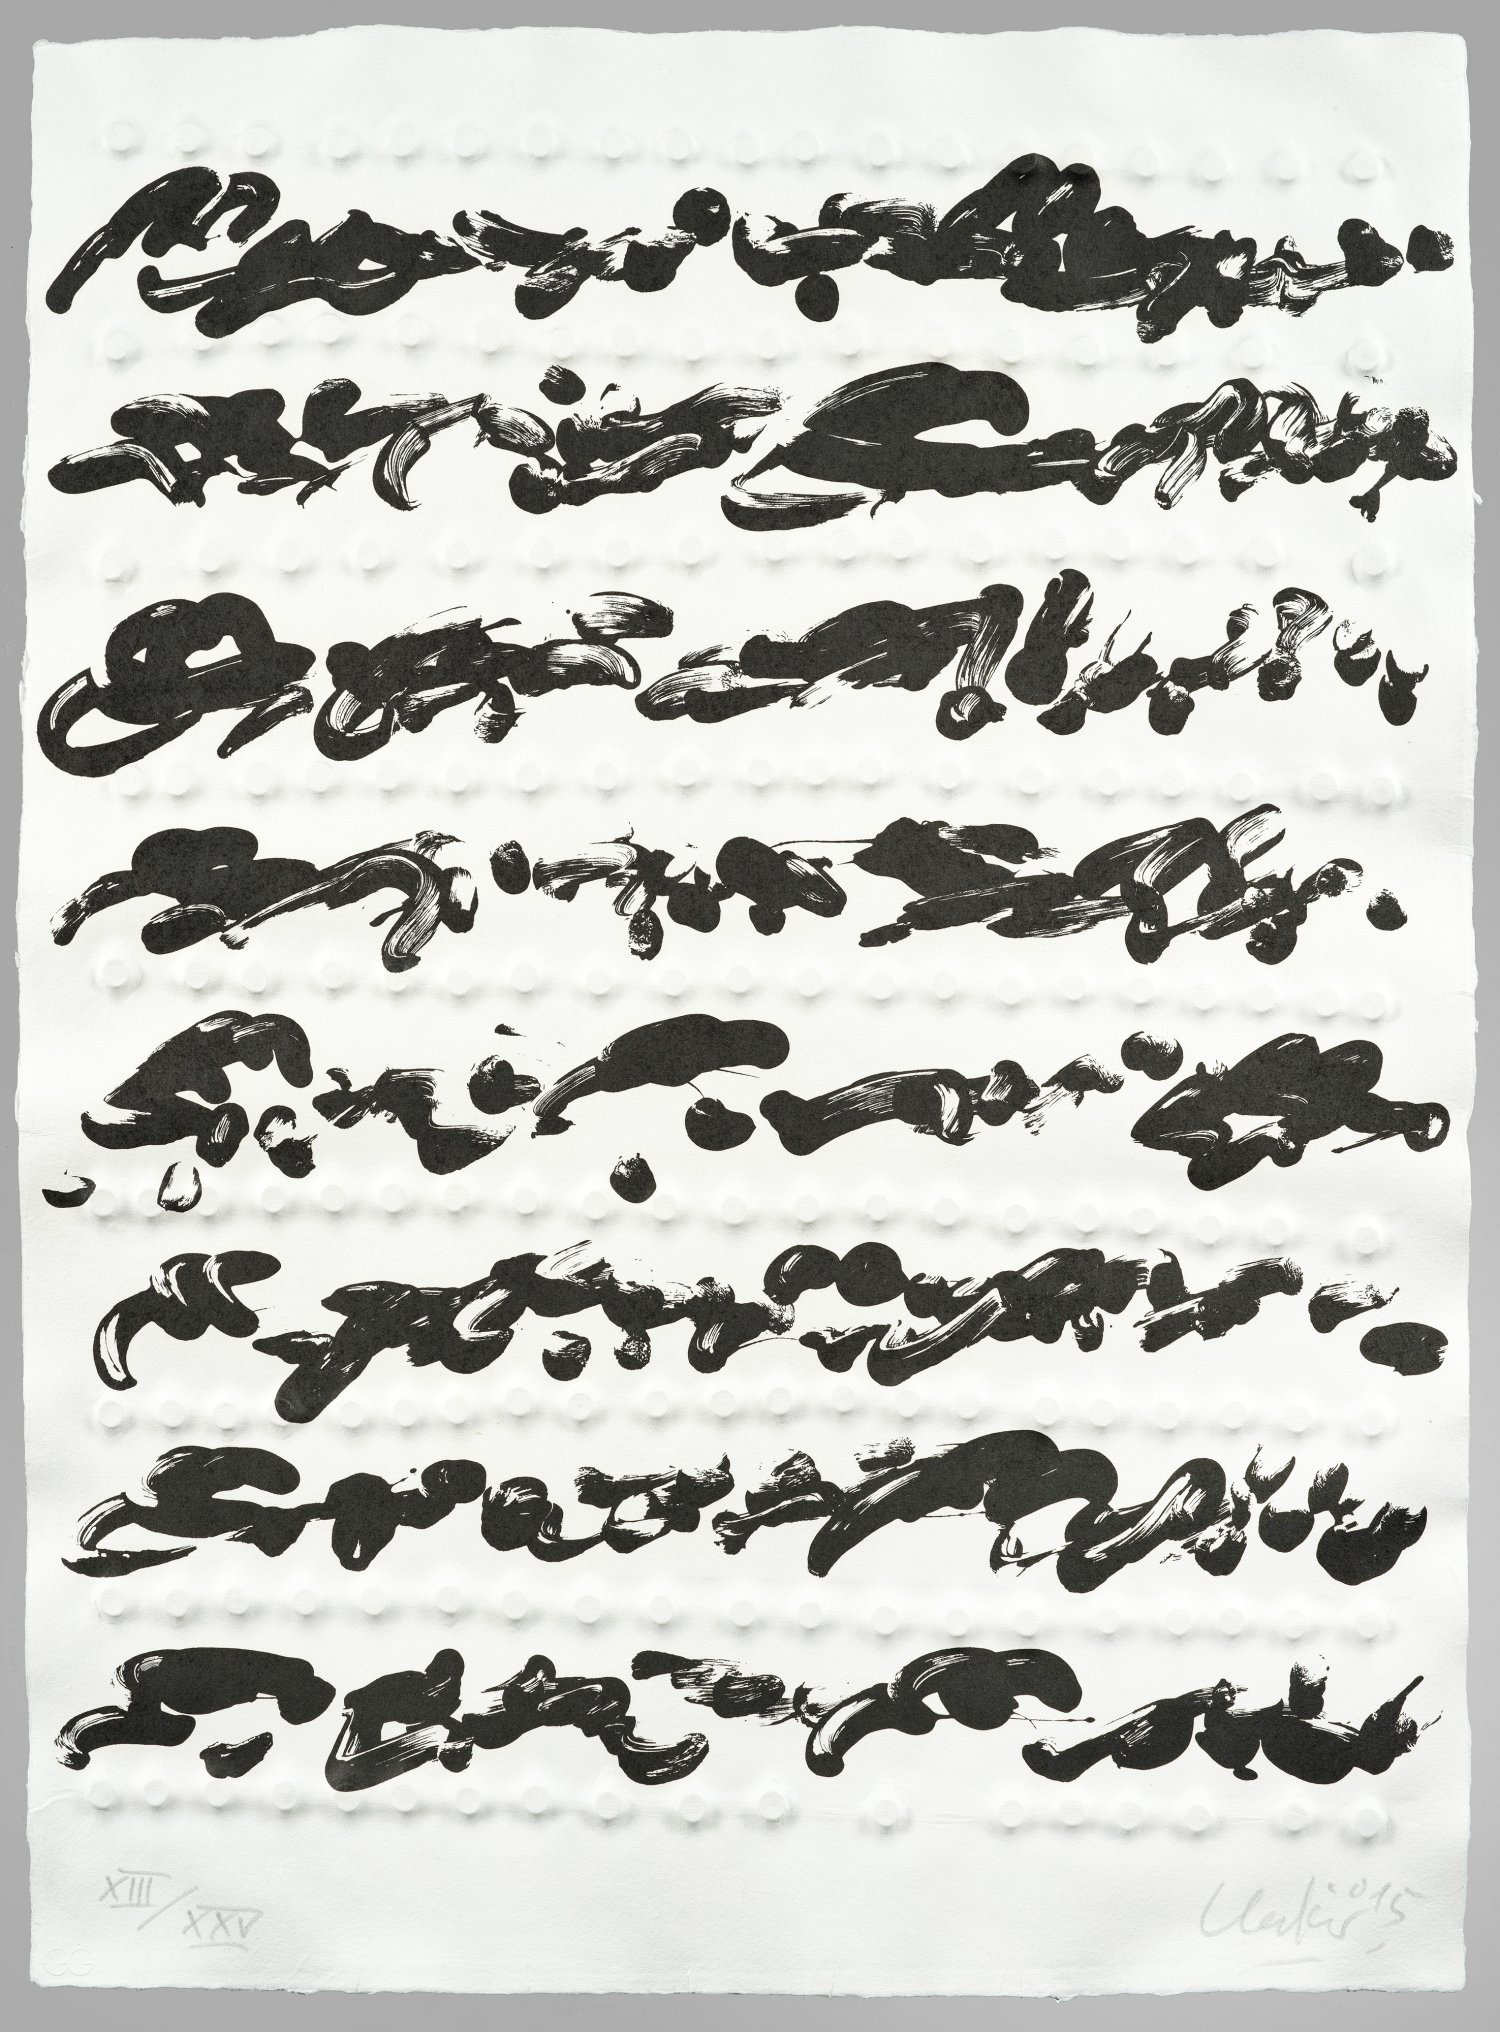 XIII/XXV
Uecker '15
GG